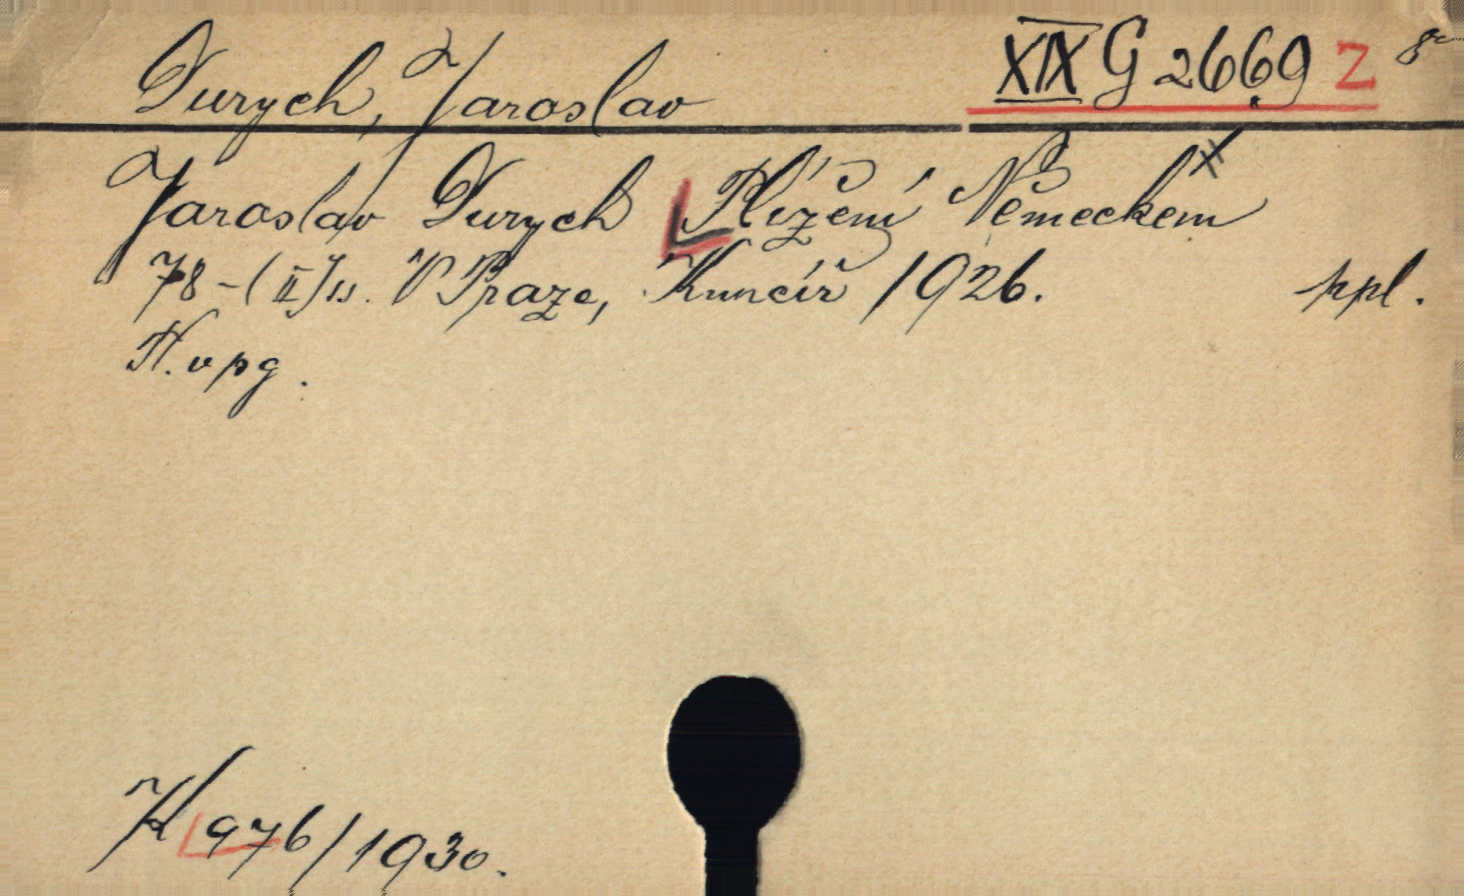 Durych, Jaroslav XIX G 2669 Z 8°
Jaroslav Durych Plížení Německem
78-(II) s. V Praze, Kuncíř 1926. ppl.
N. v pg.
K 976/1930.